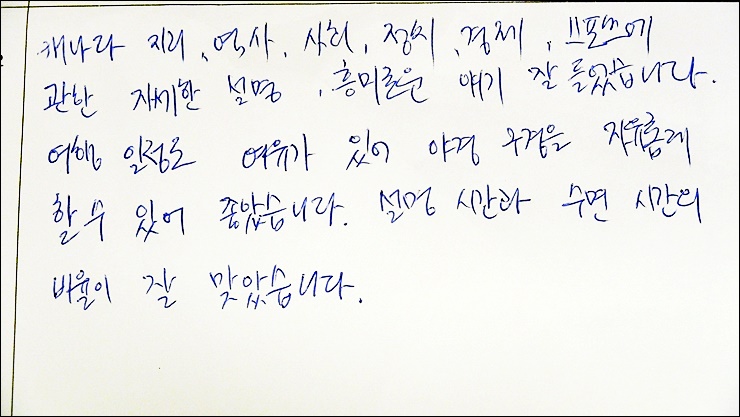 채나라 지리, 역사, 사회, 정치, 경제, 스포츠에
관한 자세한 설명, 흥미로운 얘기 잘 들었습니다.
여행 일정도 여유가 있어 야경 구경을 자유롭게
할 수 있어 좋았습니다. 설명 시간과 수면 시간의
비율이 잘 맞았습니다.